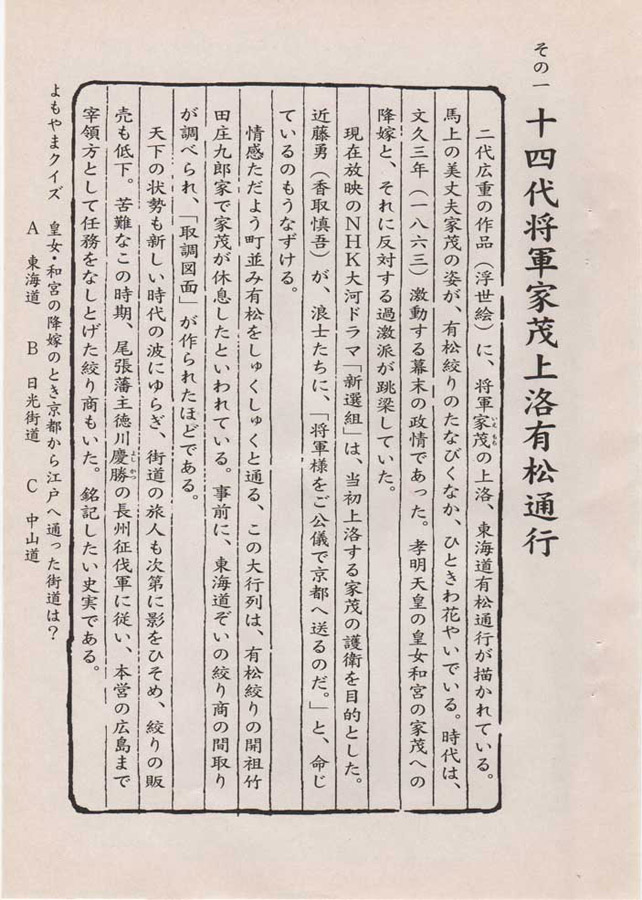 その一 十四代将軍家茂上洛有松通行
二代広重の作品（浮世絵）に、将軍家茂の上洛、東海道有松通行が描かれている。
馬上の美丈夫家茂の姿が、有松絞りのたなびくなか、ひときわ花やいでいる。時代は、
文久三年（一八六三）激動する幕末の政情であった。孝明天皇の皇女和宮の家茂への
降嫁と、それに反対する過激派が跳梁していた。
現在放映のＮＨＫ大河ドラマ「新選組」は、当初上洛する家茂の護衛を目的とした。
近藤勇（香取慎吾）が、浪士たちに、「将軍様をご公儀で京都へ送るのだ。」と、命じ
ているのもうなずける。
情感ただよう町並み有松をしゅくしゅくと通る、この大行列は、有松絞りの開祖竹
田庄九郎家で家茂が休息したといわれている。事前に、東海道ぞいの絞り商の間取り
が調べられ、「取調図面」が作られたほどである。
天下の状勢も新しい時代の波にゆらぎ、街道の旅人も次第に影をひそめ、絞りの販
売も低下。苦難なこの時期、尾張藩主徳川慶勝の長州征伐軍に従い、本営の広島まで
宰領方として任務をなしとげた絞り商もいた。銘記したい史実である。
よもやまクイズ 皇女・和宮の降嫁のとき京都から江戸へ通った街道は？
Ａ 東海道 Ｂ 日光街道 Ｃ 中山道